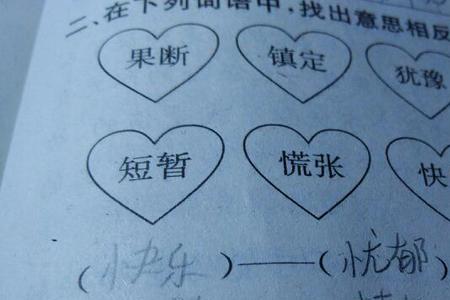 二、在下列词语中，找出意思相反
果断 镇定 犹豫
短暂 慌张 快
(快乐)——(忧郁)